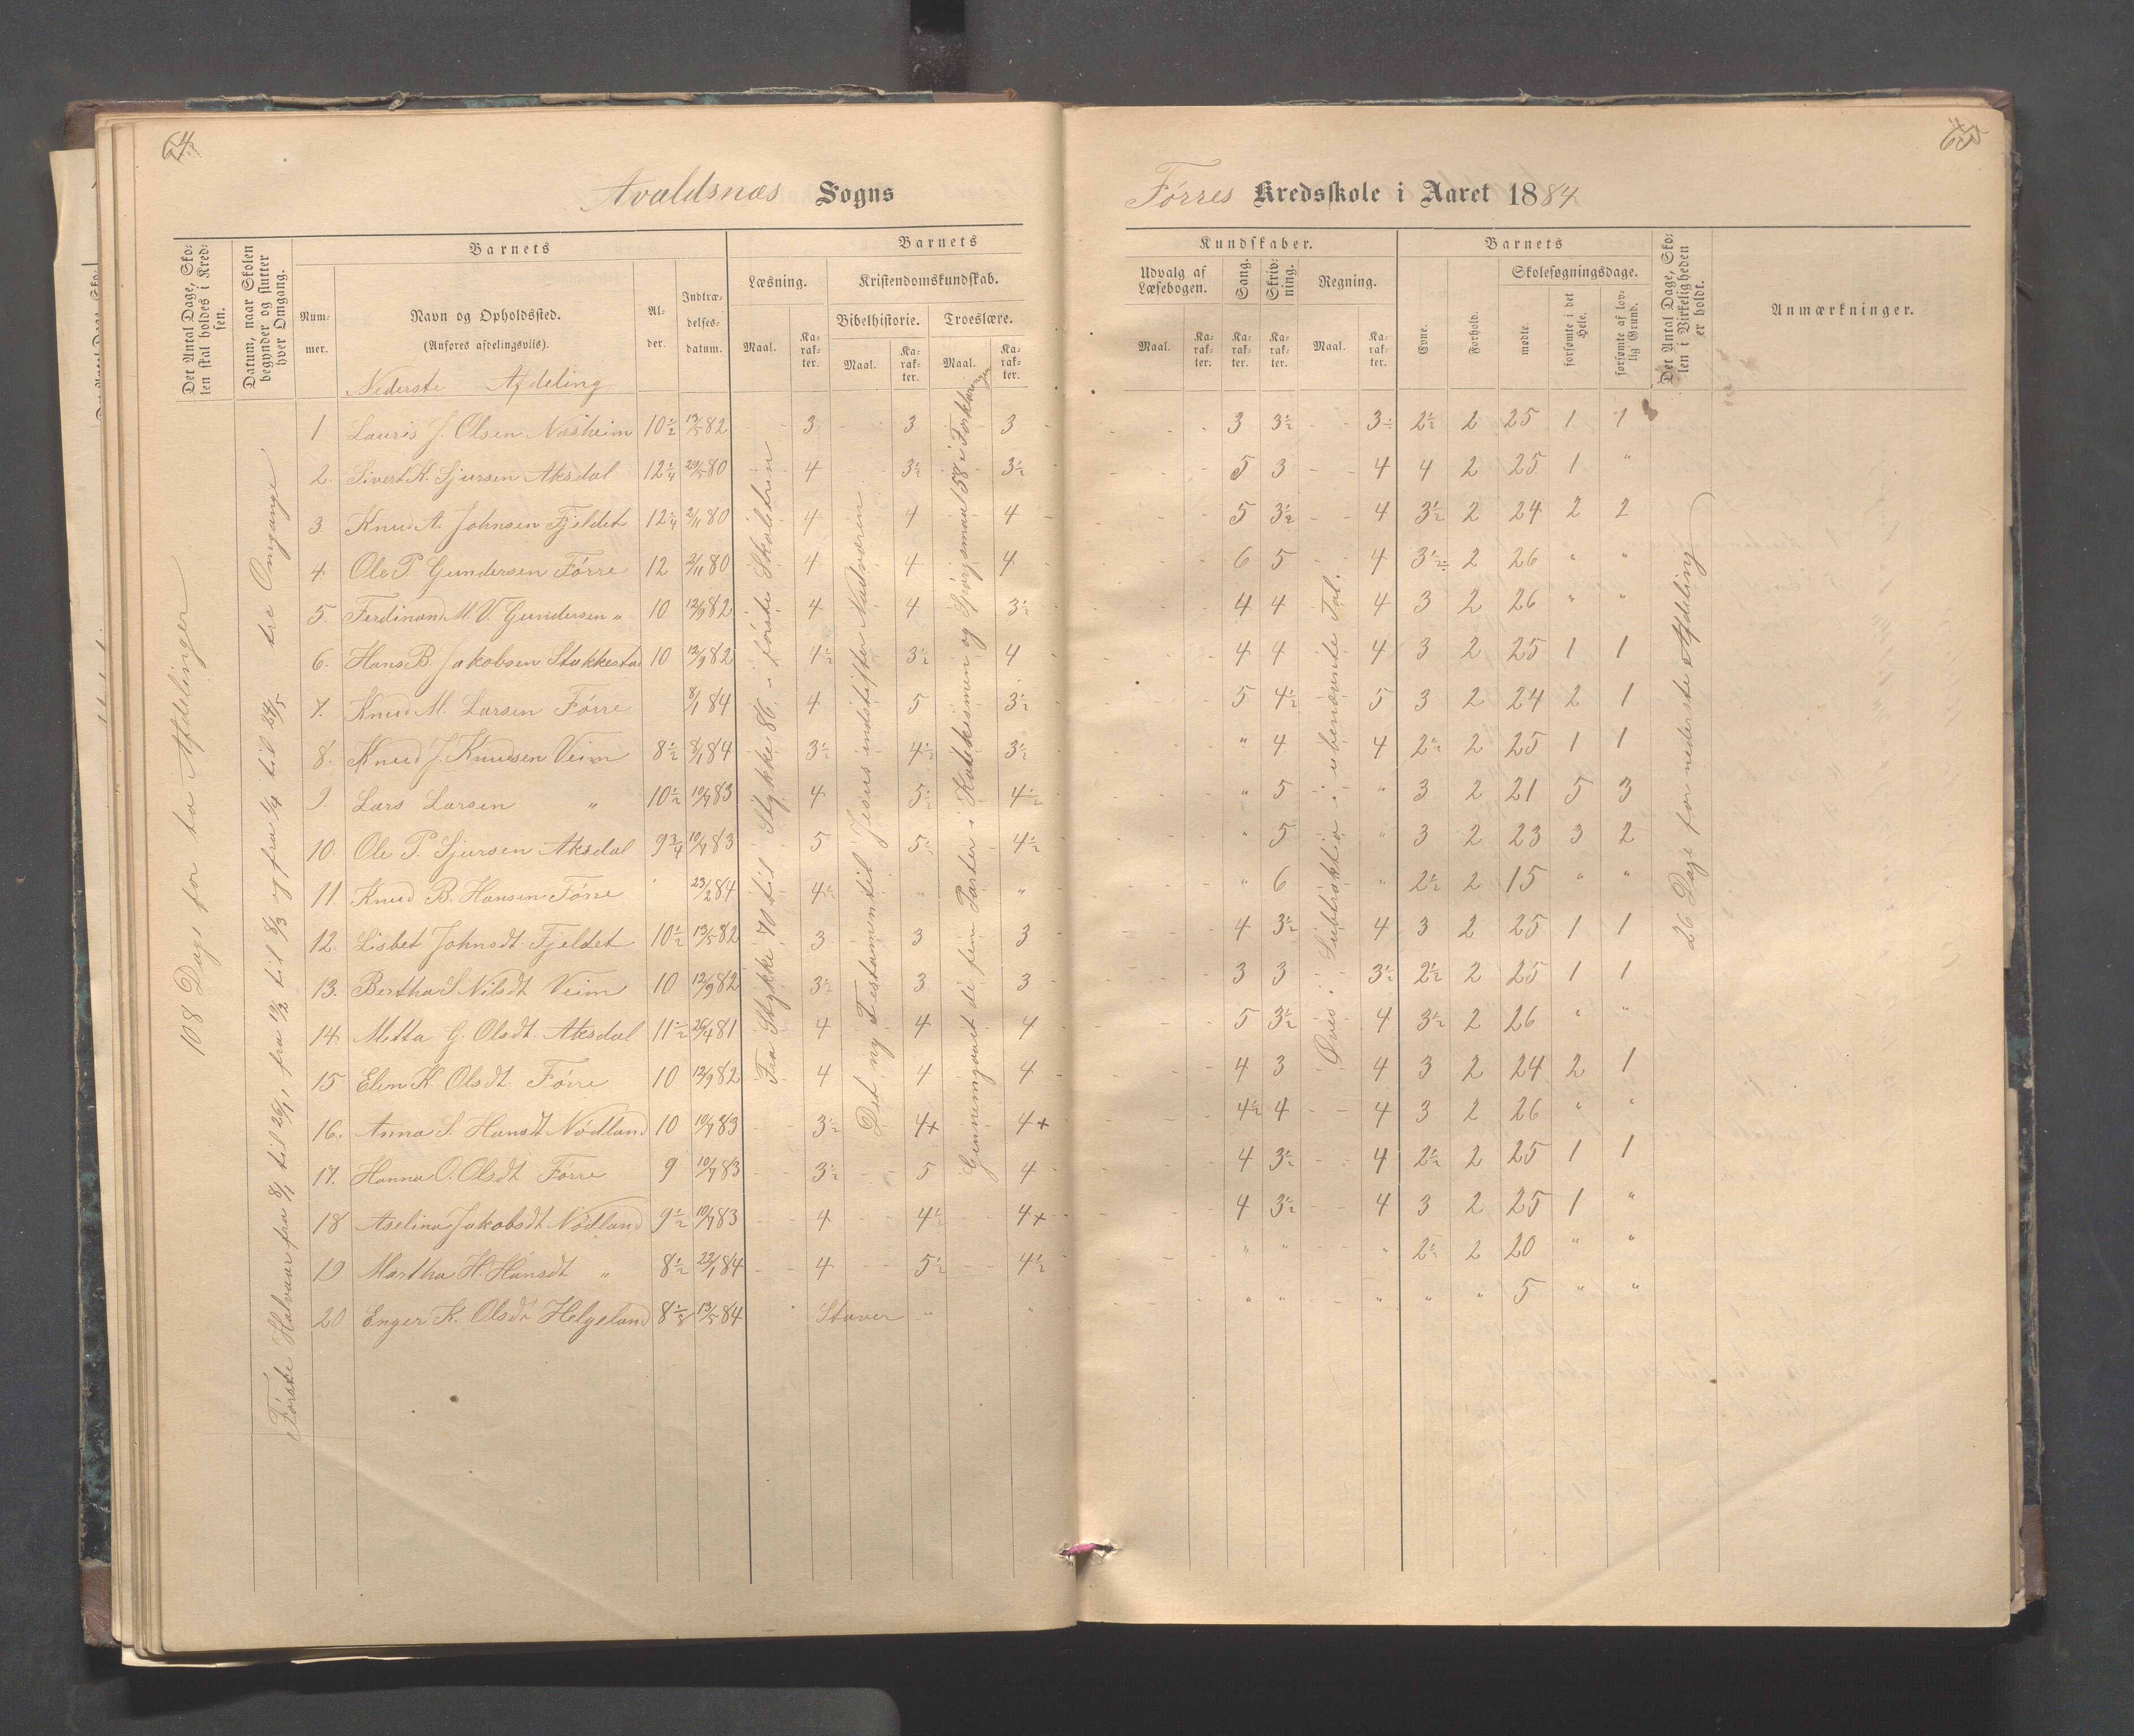 64
65
Avaldsnæs Sogns
Førres Kredsskole i Aaret 1884
Det Antal Dage, Skolen skal holdes i Kredsen.
Datum, naar Skolen begynder og slutter hver Omgang.
Barnets
Nummer.
Navn og Opholdssted.
(Anføres afdelingsvis).
Alder.
Indtrædelsesdatum.
Barnets
Læsning.
Kristendomskundskab.
Bibelhistorie. Troeslære.
Maal. Karakter. Maal. Karakter. Maal. Karakter.
Kundskaber.
Udvalg af Læsebogen.
Sang.
Skrivning.
Regning.
Maal. Karakter. Karakter. Karakter. Maal. Karakter.
Barnets
Evne.
Forhold.
Skolesøgningsdage.
mødte.
forsømte i det Hele.
forsømte af lovlig Grund.
Det Antal Dage, Skolen i Virkeligheden er holdt.
Anmærkninger.
Nederste Afdeling
108 Dage for to Afdelinger
Første Halvaar fra 8/1 til 26/1, fra 12/2 til 8/3 og fra 1/4 til 24/5 tre Omgange
Fra Stykke 70 til Stykke 86 i første Skoletrin
Det ny Testamentil Jesus indstifter Nadværen
Gjennemgaaet de fem Parter i Katekismen og Spørgsmaal 58 i Forklaringen
Øves i Subtraktio i ubenævnte Tal.
26 Dage for nederste Afdeling
1 Lauris J. Olsen Næsheim 10½ 13/5 82 3 3 3 3 3½ 3½ 2½ 2 25 1 1
2. Sivert K. Sjursen Aksdal 12¼ 29/5 80 4 3½ 3½ 5 3 4 4 2 25 1 "
3 Knud A. Johnsen Fjeldet 12¼ 2/11 80 4 4 4 5 3½ 4 3½ 2 24 2 2
4 Ole P. Gundersen Førre 12 2/11 80 4 4 4 6 5 4 3½ 2 26 " "
5. Ferdinand M. V. Gundersen " 10 12/9 82 4 4 3½ 4 4 4 3 2 26 " "
6. Hans B. Jakobsen Stakkesta 10 12/9 82 4½ 3½ 4 4 4 4 3 2 25 1 1
7. Knud M. Larsen Førre 8/1 84 4 5 3½ 5 4½ 5 3 2 24 2 1
8. Knud J. Knudsen Veim 8½ 8/1 84 3½ 4½ 3½ " 4 4 2½ 2 25 1 1
9. Lars Larsen " 10½ 10/7 83 4 5½ 4½ " 5 " 3 2 21 5 3
10. Ole P. Sjursen Aksdal 9¾ 10/7 83 5 5½ 4½ " 5 " 3 2 23 3 2
11. Knud B. Hansen Førre 23/2 84 4½ " " " 6 " 2½ 2 15 " "
12. Lisbet Johnsdt. Fjeldet 10½ 13/5 82 3 3 3 4 3½ 4 3 2 25 1 1
13. Bertha S Nilsdt Veim 10 12/9 82 3½ 3 3 3 3 3½ 2½ 2 25 1 1
14 Metta G. Olsdt. Aksdal 11½ 26/4 81 4 4 4 5 3½ 4 3½ 2 26 " "
15 Elen K. Olsdt. Førre 10 12/9 82 4 4 4 4 3 4 3 2 24 2 1
16. Anna S. Hansdt Nødland 10 10/7 83 3½ 4+ 4+ 4½ 4 4 3 2 26 " "
17. Hanna O. Olsdt Førre 9 10/7 83 3½ 5 4 4 3½ 4 2½ 2 25 1 1
18 Aselina Jakobsdt Nødland 9½ 10/7 83 4 4½ 4+ 4 3½ 4 3 2 25 1 "
19 Martha H. Hansdt " 8½ 22/1 84 4 5½ 4½ " " " 2½ 2 20 " "
20 Enger K. Olsdt Helgeland 8⅛ 13/5 84 Staver " " " " " " " 5 " "